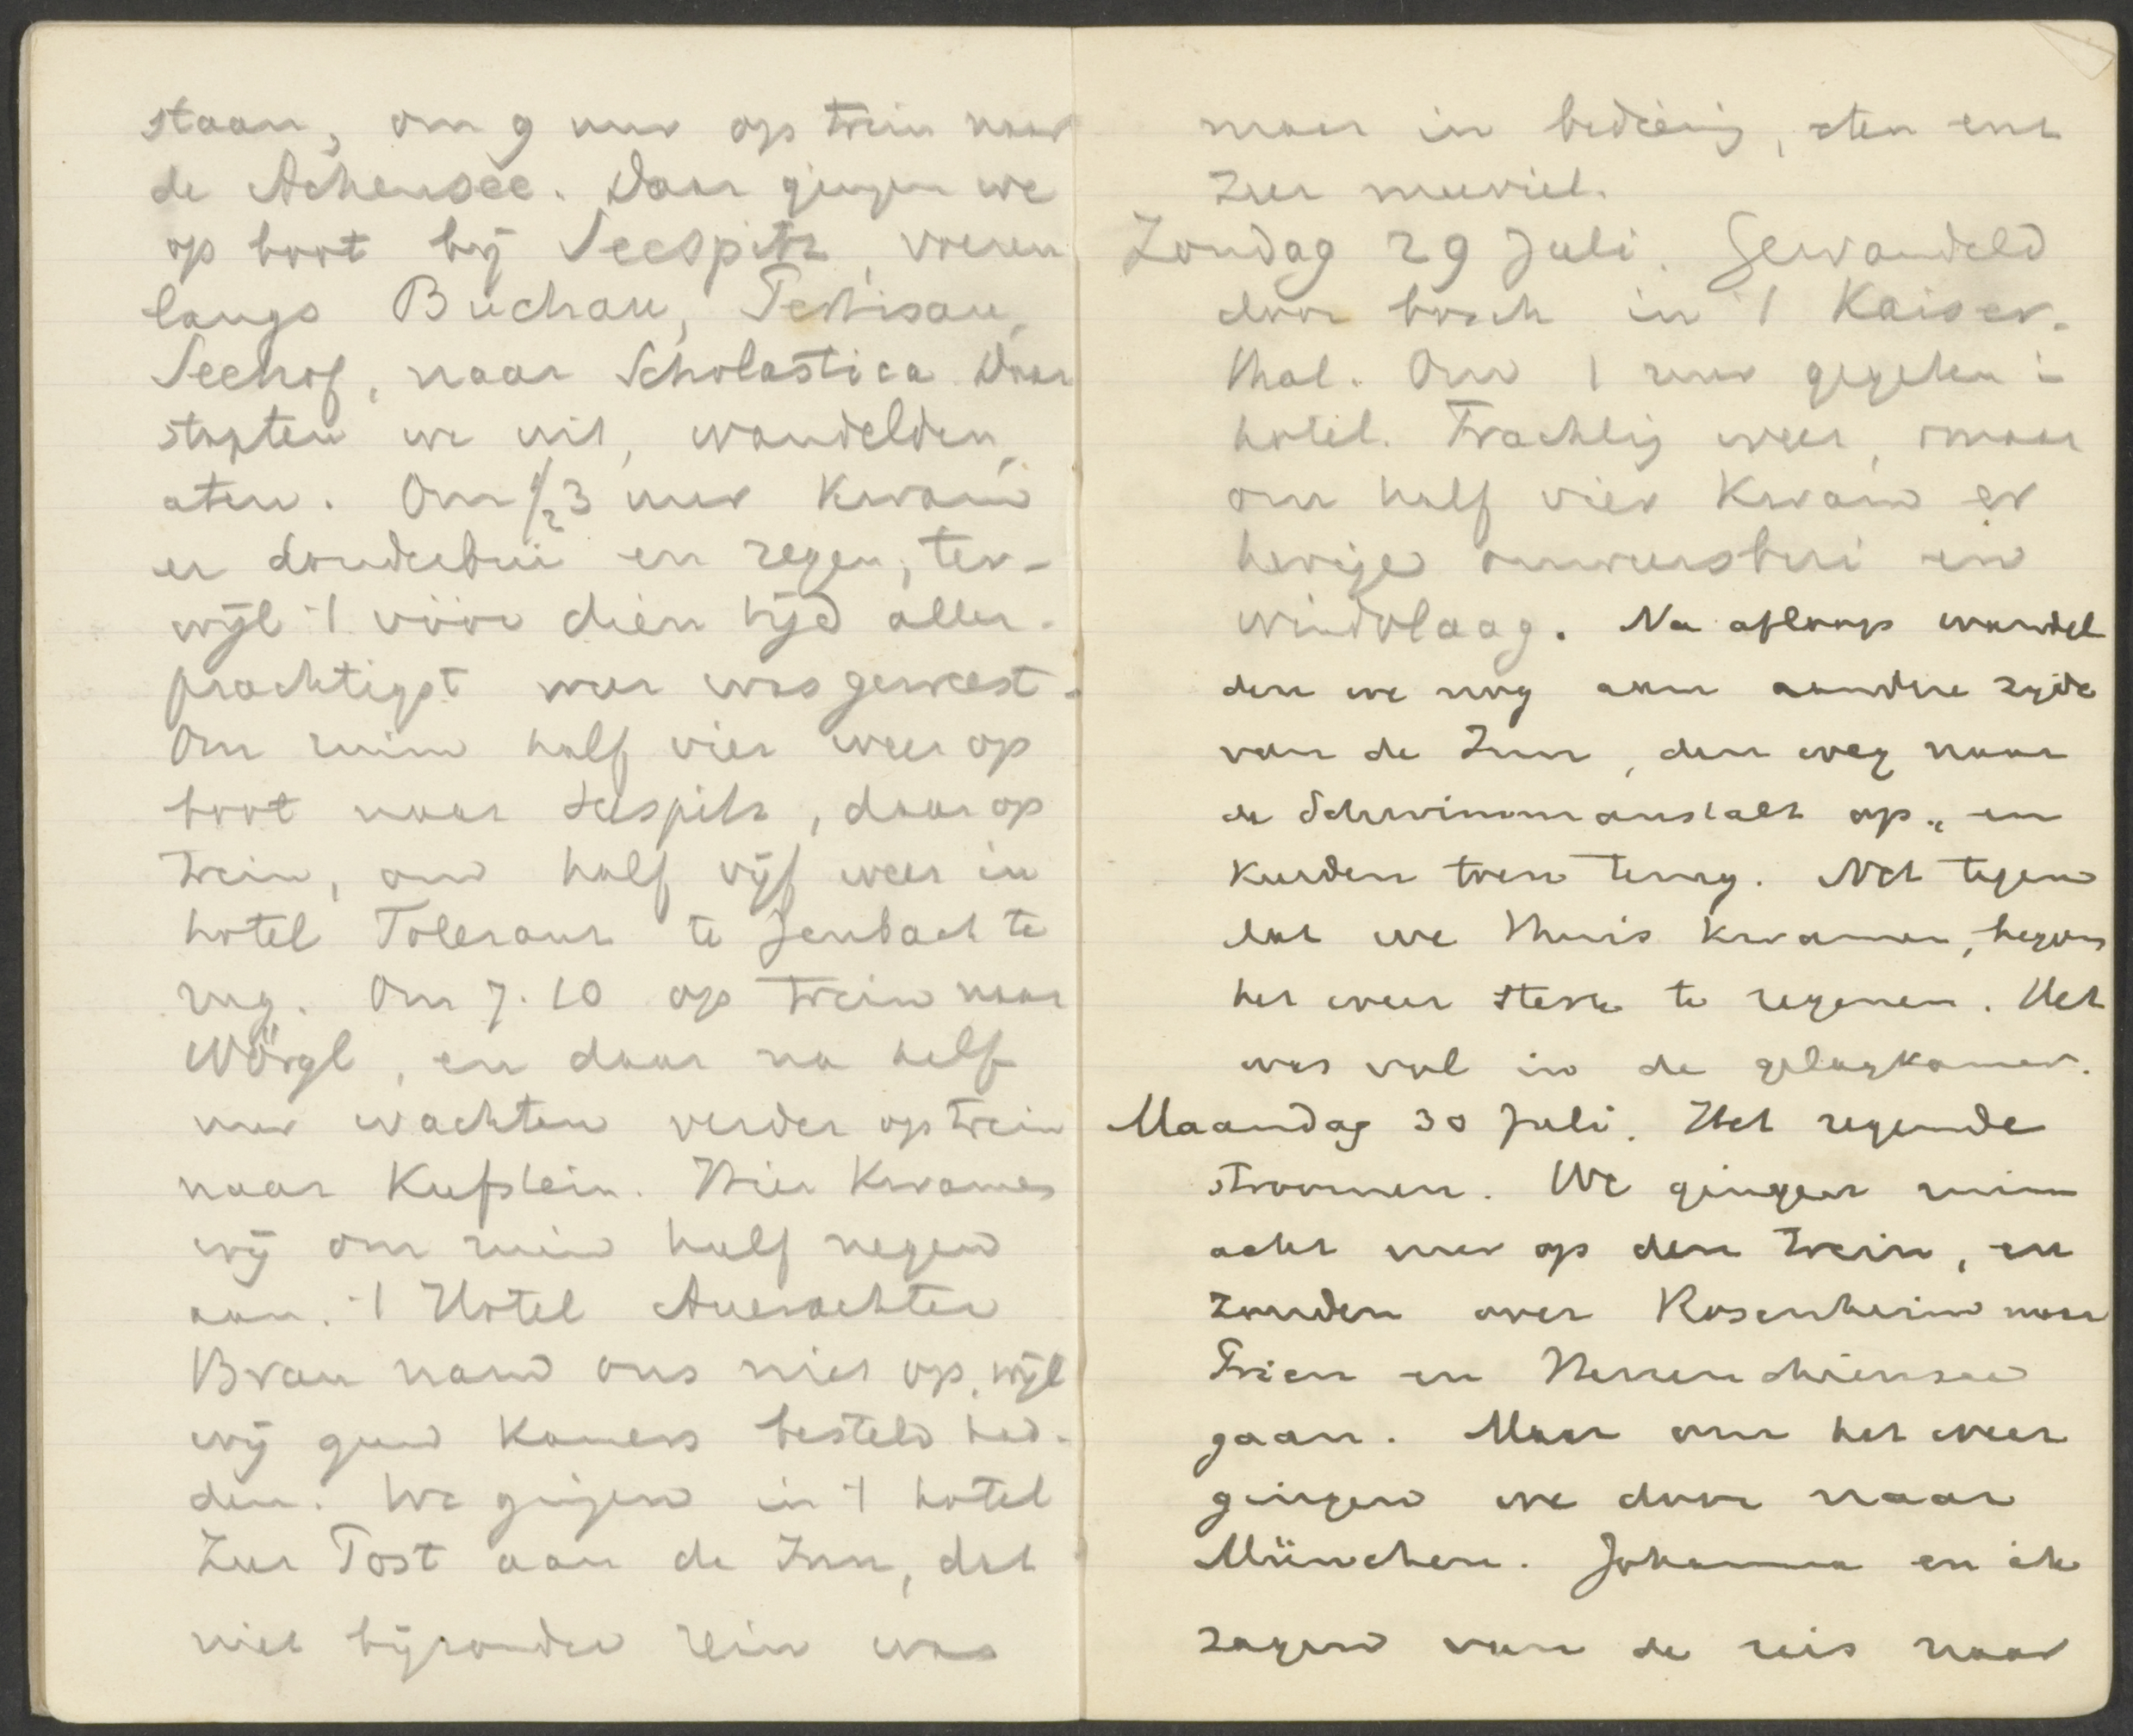 staan, om 9 uur op trein naar
de Achensee. Daar gingen we
op boot bij Seespitz, voeren
langs Buchau, Pertisau,
Seehof, naar Scholastica. Daar
stapten we uit, wandelden,
aten. Om 1/2 3 uur kwam
er donderbui en regen, ter-
wijl 't vóór dien tijd aller-
prachtigst weer was geweest.
Om ruim half vier weer op
boot naar Seespitz, daar op
trein, om half vijf weer in
hotel Toleranz te Jenbach te
rug. Om 7.10 op trein naar
Wörgl, en daar na half
uur wachten verder op trein
naar Kufstein. Hier kwamen
wij om ruim half negen
aan. 't Hotel Auerachter
Brau nam ons niet op, wijl
wij geen kamers besteld had-
den. We gingen in 't hotel
Zur Post aan de Inn, dat
niet bijzonder rein was
maar in bediening, eten enz
zeer meeviel.
Zondag 29 Juli. Gewandeld
door bosch in 't Kaiser-
thal. Om 1 uur gegeten in
hotel. Prachtig weer, maar
om half vier kwam er
hevige onweersbui en
windvlaag. Na afloop wandel
den we nog aan aandere zijde
van de Inn, den weg naar
de Schwimmanstalt op, en
keerden toen terug. Net tegen
dat we thuis kwamen, begon
het weer sterk te regenen. Het
was vol in de gelagkamer.
Maandag 30 Juli. Het regende
stroomen. We gingen ruim
acht uur op den trein, en
zouden over Rosenheim naar
Prien en Herrenchiemsee
gaan. Maar om het weer
gingen we door naar
München. Johanna en ik
zagen van de reis naar